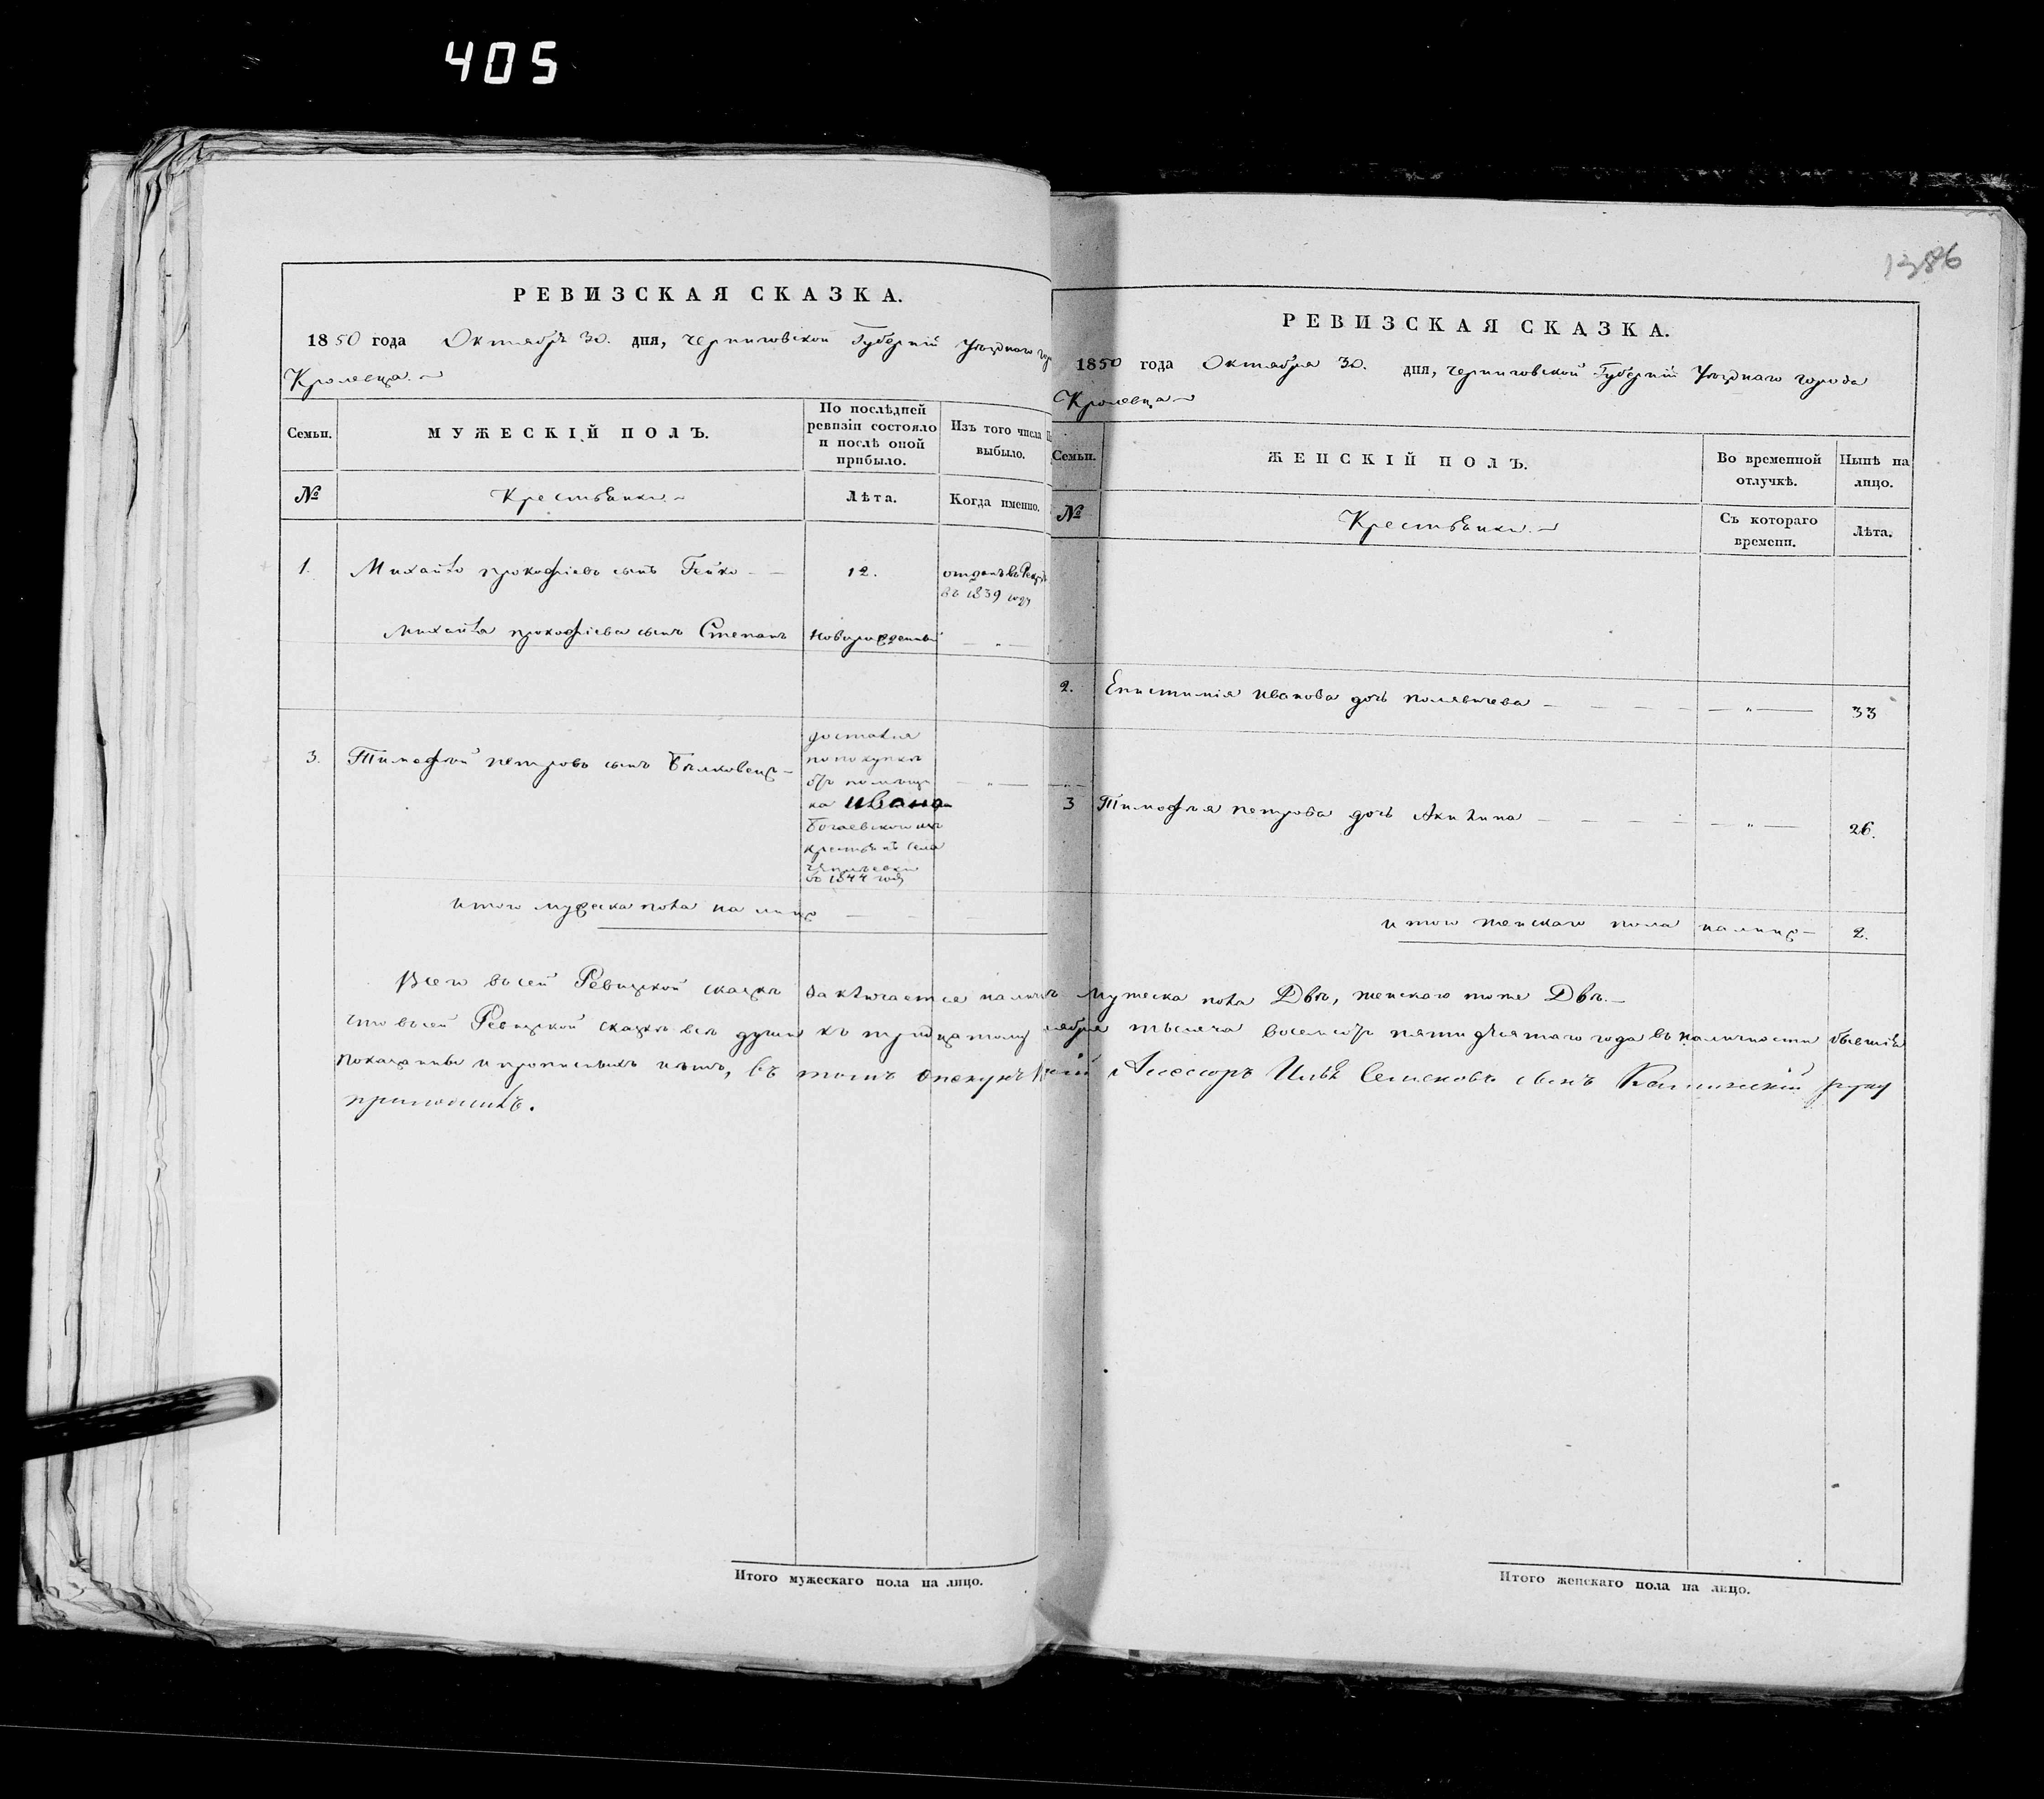 405
РЕВИЗСКАЯ СКАЗКА.
1850 года Октября 30. дня, Черниговской Губерніи Уѣзднаго го
Кролевца.
Семьи.
МУЖЕСКІЙ ПОЛЪ.
По послѣдней
ревизіи состояло
и послѣ оной
прибыло.
Изъ того числа
выбыло.
№
Крестьянки.
Лѣта.
Когда именно.
1.
Михайло Прокофіевъ сынъ Гейко
12.
отданъ въ Рекр
въ 1839 году
Михайла Прокофіева сынъ Степанъ
Новорожденный
3.
Тимофей Петровъ сынъ
по покупкѣ
отъ помѣщи
ка Ивана
Богаевского изъ
крестьянъ села
въ 1844 году
Итого мужеска пола на лицо
Всего въ сей Ревизской сказкѣ заключается на лицо
что въ сей Ревизской сказкѣ всѣ души къ тридцатому
показаны и прописныхъ нѣтъ, въ томъ опекунъ
приложилъ.
Итого мужескаго пола на лицо.
1386
РЕВИЗСКАЯ СКАЗКА.
1850 года Октября 30. дня, Черниговской Губерніи Уѣзднаго города
Кролевца
Семьи.
ЖЕНСКІЙ ПОЛЪ.
Во временной
отлучкѣ.
Нынѣ на
лицо.
№
Крестьянки.
Съ котораго
времени.
Лѣта.
2.
Епистимія Иванова дочь
33
3
Тимофея Петрова дочь Акилина
26.
Итого женскаго пола на лицо
2.
мужеска пола Двѣ, женскаго тоже Двѣ.
тысяча восемьсотъ пятидесятаго года въ наличности бывшія
Ассессоръ сынъ руку
Итого женскаго пола на лицо.